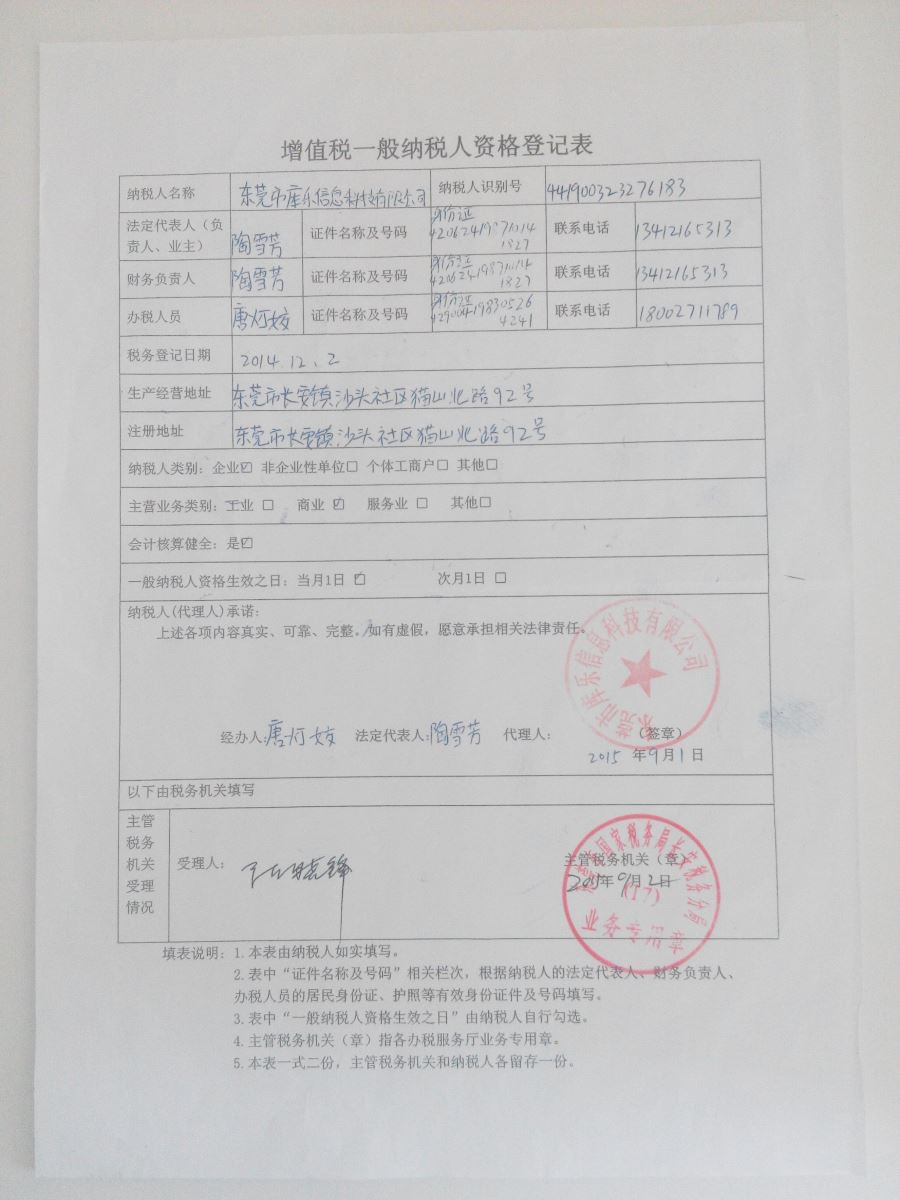 增值税一般纳税人资格登记表
纳税人名称 东莞市库乐信息科技有限公司 纳税人识别号 441900323276183
法定代表人（负责人、业主） 陶雪芳 证件名称及号码 身份证 420624198710141827 联系电话 13412165313
财务负责人 陶雪芳 证件名称及号码 身份证 420624198710141827 联系电话 13412165313
办税人员 唐灯姣 证件名称及号码 身份证 429004198305264241 联系电话 18002711789
税务登记日期 2014.12.2
生产经营地址 东莞市长安镇沙头社区猫山北路92号
注册地址 东莞市长安镇沙头社区猫山北路92号
纳税人类别：企业☑ 非企业性单位□ 个体工商户□ 其他□
主营业务类别：工业 □ 商业 ☑ 服务业 □ 其他□
会计核算健全：是☑
一般纳税人资格生效之日：当月1日 ☑ 次月1日 □
纳税人(代理人)承诺：
上述各项内容真实、可靠、完整。如有虚假，愿意承担相关法律责任。
东莞市库乐信息科技有限公司
经办人：唐灯姣 法定代表人：陶雪芳 代理人： （签章）
2015 年9月1日
以下由税务机关填写
主管税务机关受理情况
受理人：
主管税务机关（章）
2015年9月2日
东莞市国家税务局长安税务分局
(17)
业务专用章
填表说明：1.本表由纳税人如实填写。
2.表中“证件名称及号码”相关栏次，根据纳税人的法定代表人、财务负责人、
办税人员的居民身份证、护照等有效身份证件及号码填写。
3.表中“一般纳税人资格生效之日”由纳税人自行勾选。
4.主管税务机关（章）指各办税服务厅业务专用章。
5.本表一式二份，主管税务机关和纳税人各留存一份。